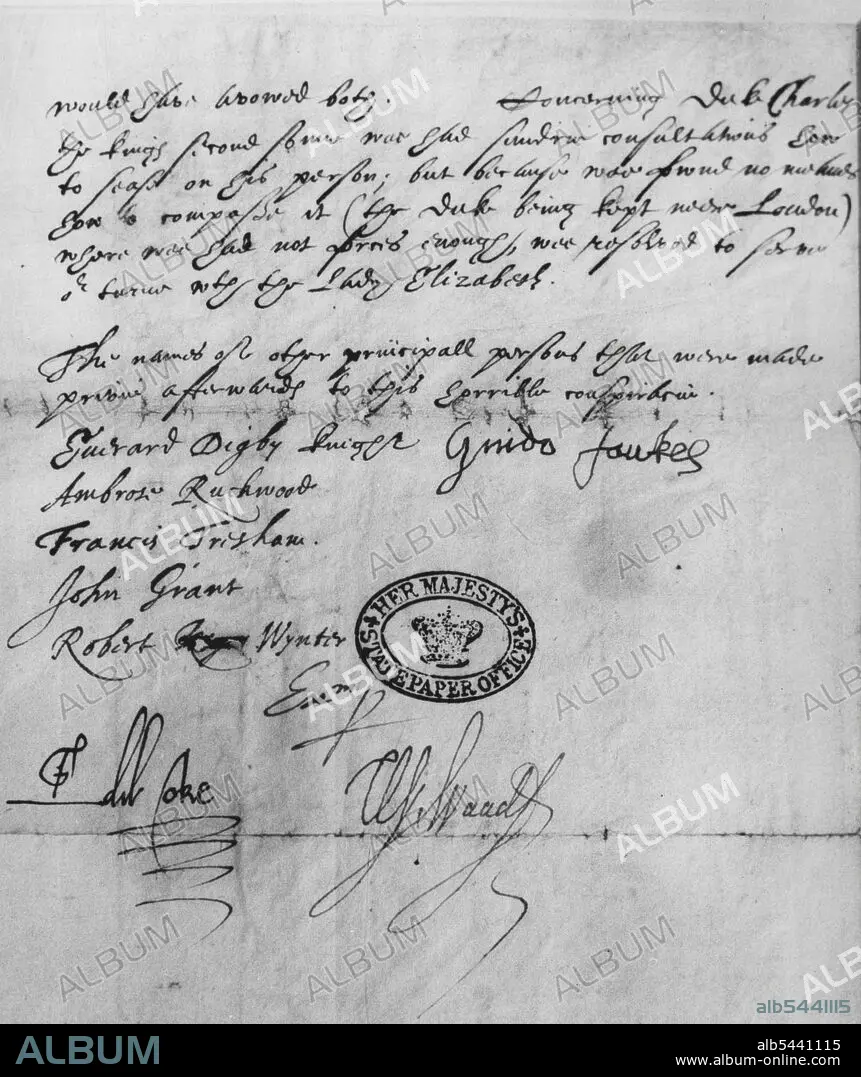 would have avowed both. Concerning Duke Charles
the kings second sonne wee had sundrie consultations how
to sease on his person; but because wee found no meanes
how to compasse it (the Duke being kept neere London)
where wee had not forces enough, wee resolved to serve
oʳ turne wth the Lady Elizabeth.
The names of other principall persons that were made
privie afterwards to this horrible conspiracie.
Everard Digby knight Guido fawkes
Ambrose Ruckwood
Francis Tresham.
John Grant
Robert Wynter
HER MAJESTY'S
STATE PAPER OFFICE
Edw Coke W. Waad
ALBUM
alb5441115
ALBUM
alb5441115
www.album-online.com